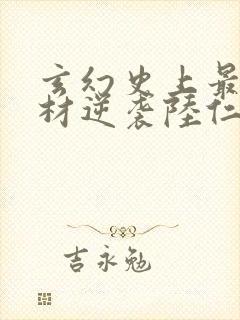 玄幻史上最
材逆袭陆仁
吉永勉